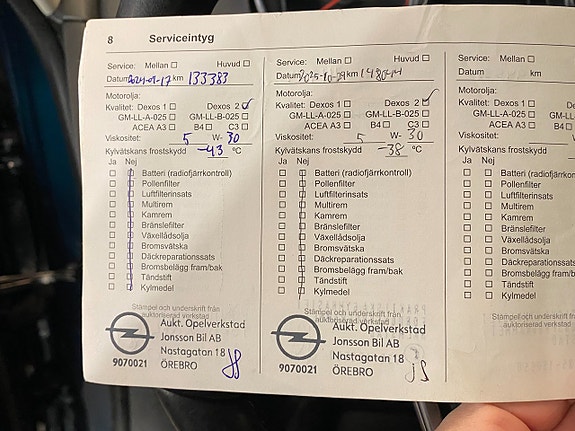 8 Serviceintyg
Service: Mellan ☐ Huvud ☐
Datum 2024-09-17 km 133383
Motorolja:
Kvalitet: Dexos 1 ☐ Dexos 2 ☑
GM-LL-A-025 ☐ GM-LL-B-025 ☐
ACEA A3 ☐ B4 ☐ C3 ☐
Viskositet: 5 W- 30
Kylvätskans frostskydd -43 °C
Ja Nej
Batteri (radiofjärrkontroll)
Pollenfilter
Luftfilterinsats
Multirem
Kamrem
Bränslefilter
Växellådsolja
Bromsvätska
Däckreparationssats
Bromsbelägg fram/bak
Tändstift
Kylmedel
Stämpel och underskrift från
auktoriserad verkstad
Aukt. Opelverkstad
Jonsson Bil AB
Nastagatan 18
9070021 ÖREBRO
Service: Mellan ☐ Huvud ☐
Datum 2025-10-29 km 148044
Motorolja:
Kvalitet: Dexos 1 ☐ Dexos 2 ☑
GM-LL-A-025 ☐ GM-LL-B-025 ☐
ACEA A3 ☐ B4 ☐ C3 ☐
Viskositet: 5 W- 30
Kylvätskans frostskydd -38 °C
Ja Nej
Batteri (radiofjärrkontroll)
Pollenfilter
Luftfilterinsats
Multirem
Kamrem
Bränslefilter
Växellådsolja
Bromsvätska
Däckreparationssats
Bromsbelägg fram/bak
Tändstift
Kylmedel
Stämpel och underskrift från
auktoriserad verkstad
Aukt. Opelverkstad
Jonsson Bil AB
Nastagatan 18
9070021 ÖREBRO
Service: Mellan ☐
Datum km
Motorolja:
Kvalitet: Dexos 1 ☐
GM-LL-A-025 ☐
ACEA A3 ☐
Viskositet:
Kylvätskans frostskydd
Ja Nej
Batteri (radiofjärrkontroll)
Pollenfilter
Luftfilterinsats
Multirem
Kamrem
Bränslefilter
Växellådsolja
Bromsvätska
Däckreparationssats
Bromsbelägg fram/bak
Tändstift
Kylmedel
Stämpel och
auktoriserad